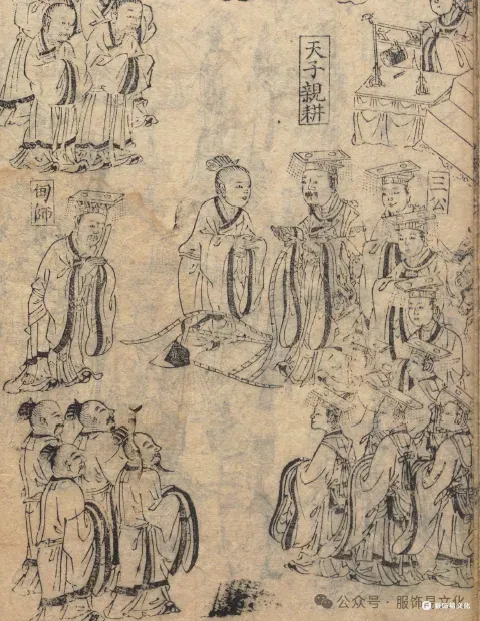 天子親耕
三公
甸師
公众号·服饰是文化